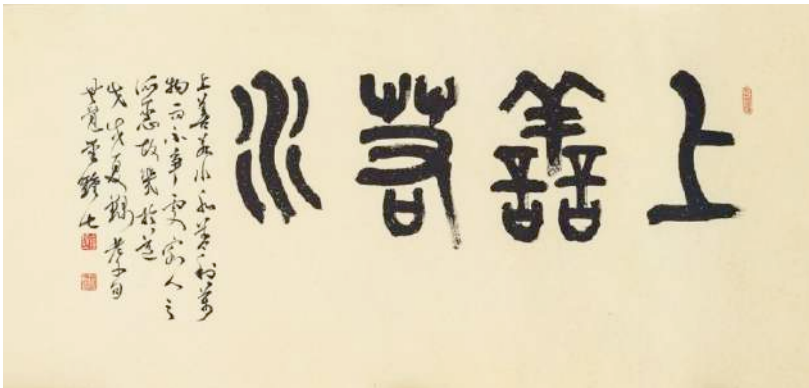 上譱若水
上善若水水善利萬
物而不爭處眾人之
所惡故幾於道
戊戌夏錄老子句